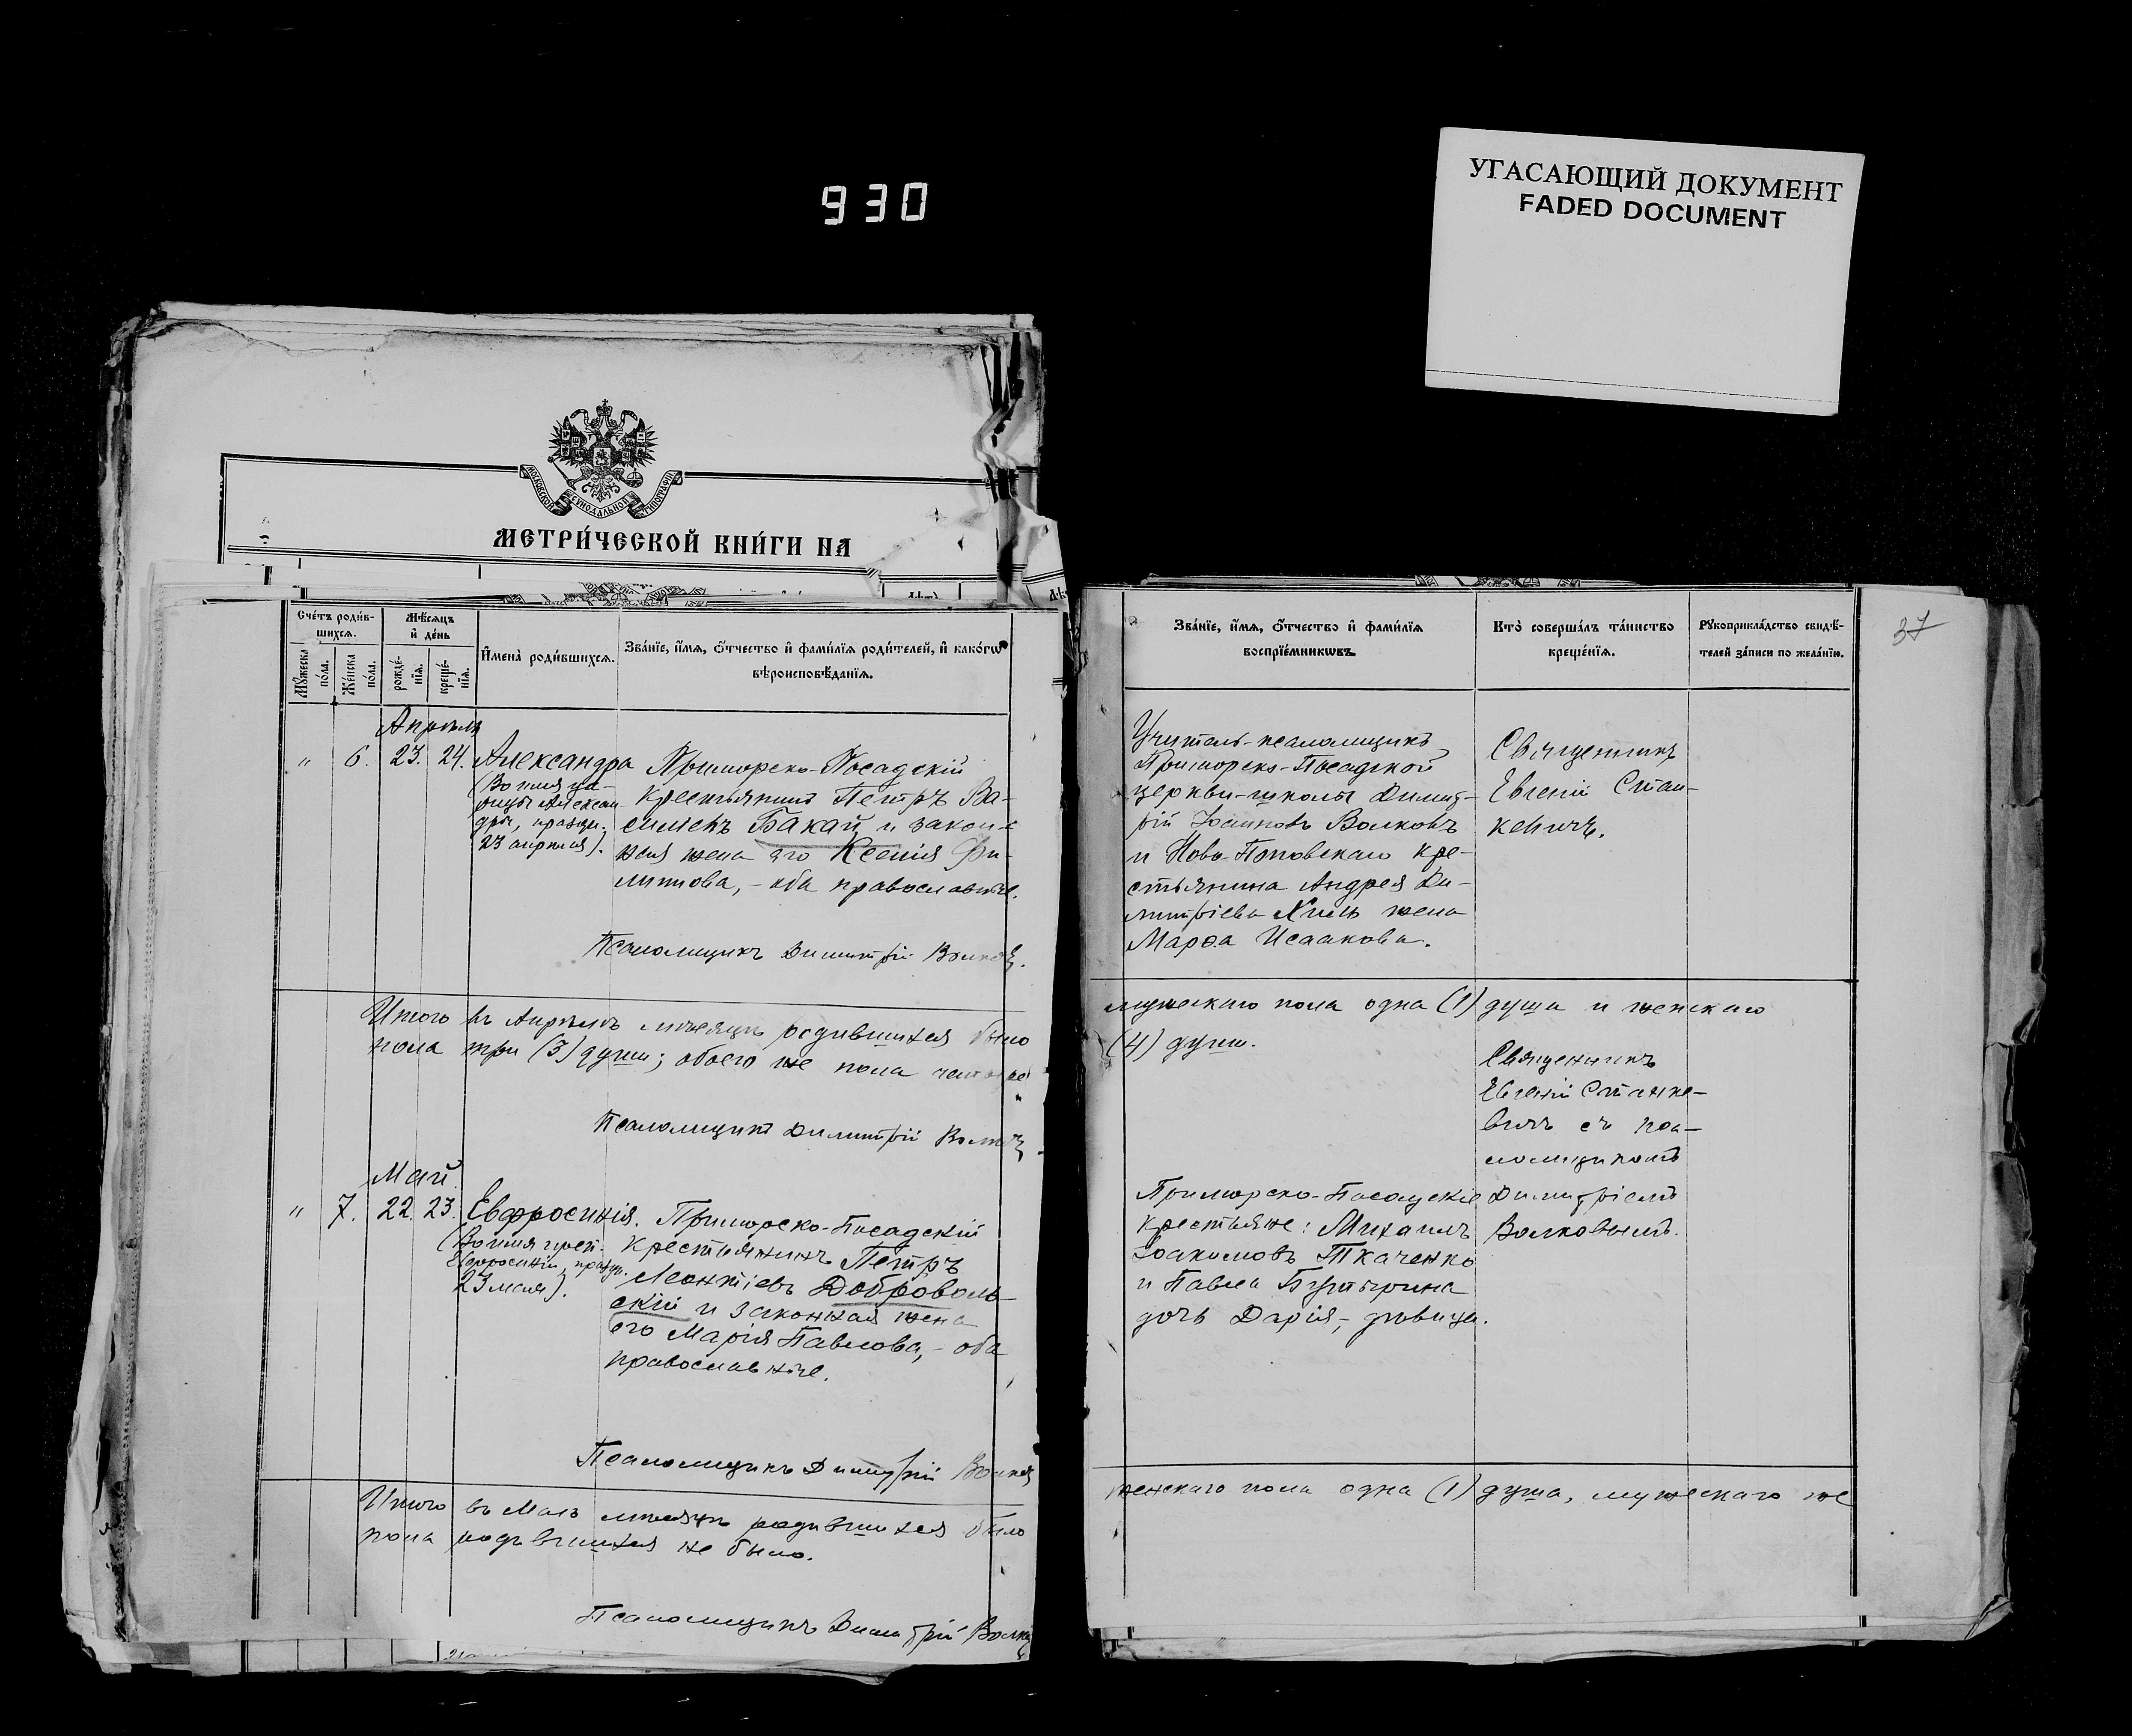 930
УГАСАЮЩИЙ ДОКУМЕНТ
FADED DOCUMENT
МОСКОВСКОЙ СѴНОДАЛЬНОЙ ТИПОГРАФІИ
МЕТРИ́ЧЕСКОЙ КНИ́ГИ НА
Сче́тъ роди́в-
шихся.
Мѣ́сяцъ
и҆ де́нь
Му́жеска по́ла.
Же́нска по́ла.
рожде́-
нїя.
креще́-
нїя.
И҆мена̀ роди́вшихся.
Зва́нїе, и҆́мя, ѻ҆́тчество и҆ фами́лїя роди́телей, и҆ како́гѡ
вѣроисповѣ́данїя.
Апрѣль
" 6. 23. 24. Александра
(Во имя ца-
рицы Алексан-
дры, праздн.
23 апрѣля).
Приморско-Посадскій
крестьянинъ Петръ Ва-
сильевъ Бакай и закон-
ная жена его Ксенія Фи-
липпова, - оба православные.
Псаломщикъ Димитрій Волковъ.
Итого въ Апрѣлѣ мѣсяцѣ родившихся было
пола три (3) души; обоего же пола четыре
Псаломщикъ Димитрій Волковъ
Май
" 7. 22. 23. Евфросинія.
(Во имя преп.
Евфросиніи, праздн.
23 мая).
Приморско-Посадскій
крестьянинъ Петръ
Леонтіевъ Доброволь-
скій и законная жена
его Марія Павлова, - оба
православные.
Псаломщикъ Димитрій Волковъ
Итого въ Маѣ мѣсяцѣ родившихся было
пола родившихся не было.
Псаломщикъ Димитрій Волковъ
37
Зва́нїе, и҆́мя, ѻ҆́тчество и҆ фами́лїя
воспрїе́мникѡвъ.
Кто̀ соверша́лъ та́инство
креще́нїя.
Рꙋкоприкла́дство свидѣ́-
телей за́писи по жела́нїю.
Учитель-псаломщикъ
Приморско-Посадской
церкви-школы Димит-
рій Іоанновъ Волковъ
и Ново-Поповскаго кре-
стьянина Андрея Ди-
митріева Хиль жена
Марѳа Исаакова.
Священникъ
Евгеній Стан-
кевичъ.
мужескаго пола одна (1) душа и женскаго
(4) души.
Священникъ
Евгеній Станке-
вичъ съ пса-
ломщикомъ
Димитріемъ
Волковымъ.
Приморско-Посадскіе
крестьяне: Михаилъ
Іоакимовъ Ткаченко
и Павла Бутырина
дочь Дарія, - дѣвица.
женскаго пола одна (1) душа, мужескаго же